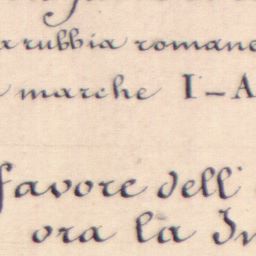 rubbia romane
marche I-A
favore dell'
ora la In